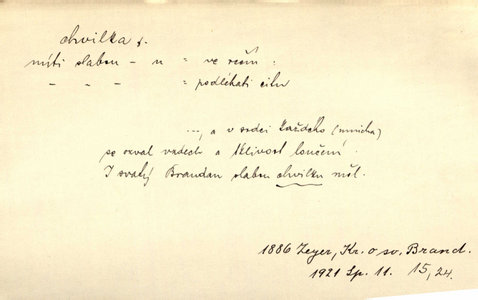 chvilka f.
míti slabou - u = ve rčení:
- - - = podléhati citu
..., a v srdci každého (mnicha)
se ozval vzdech a tklivost loučení.
I svatý Brandan slabou chvilku měl.
1886 Zeyer, Kr. o sv. Brand.
1921 Sp. 11. 15, 24.